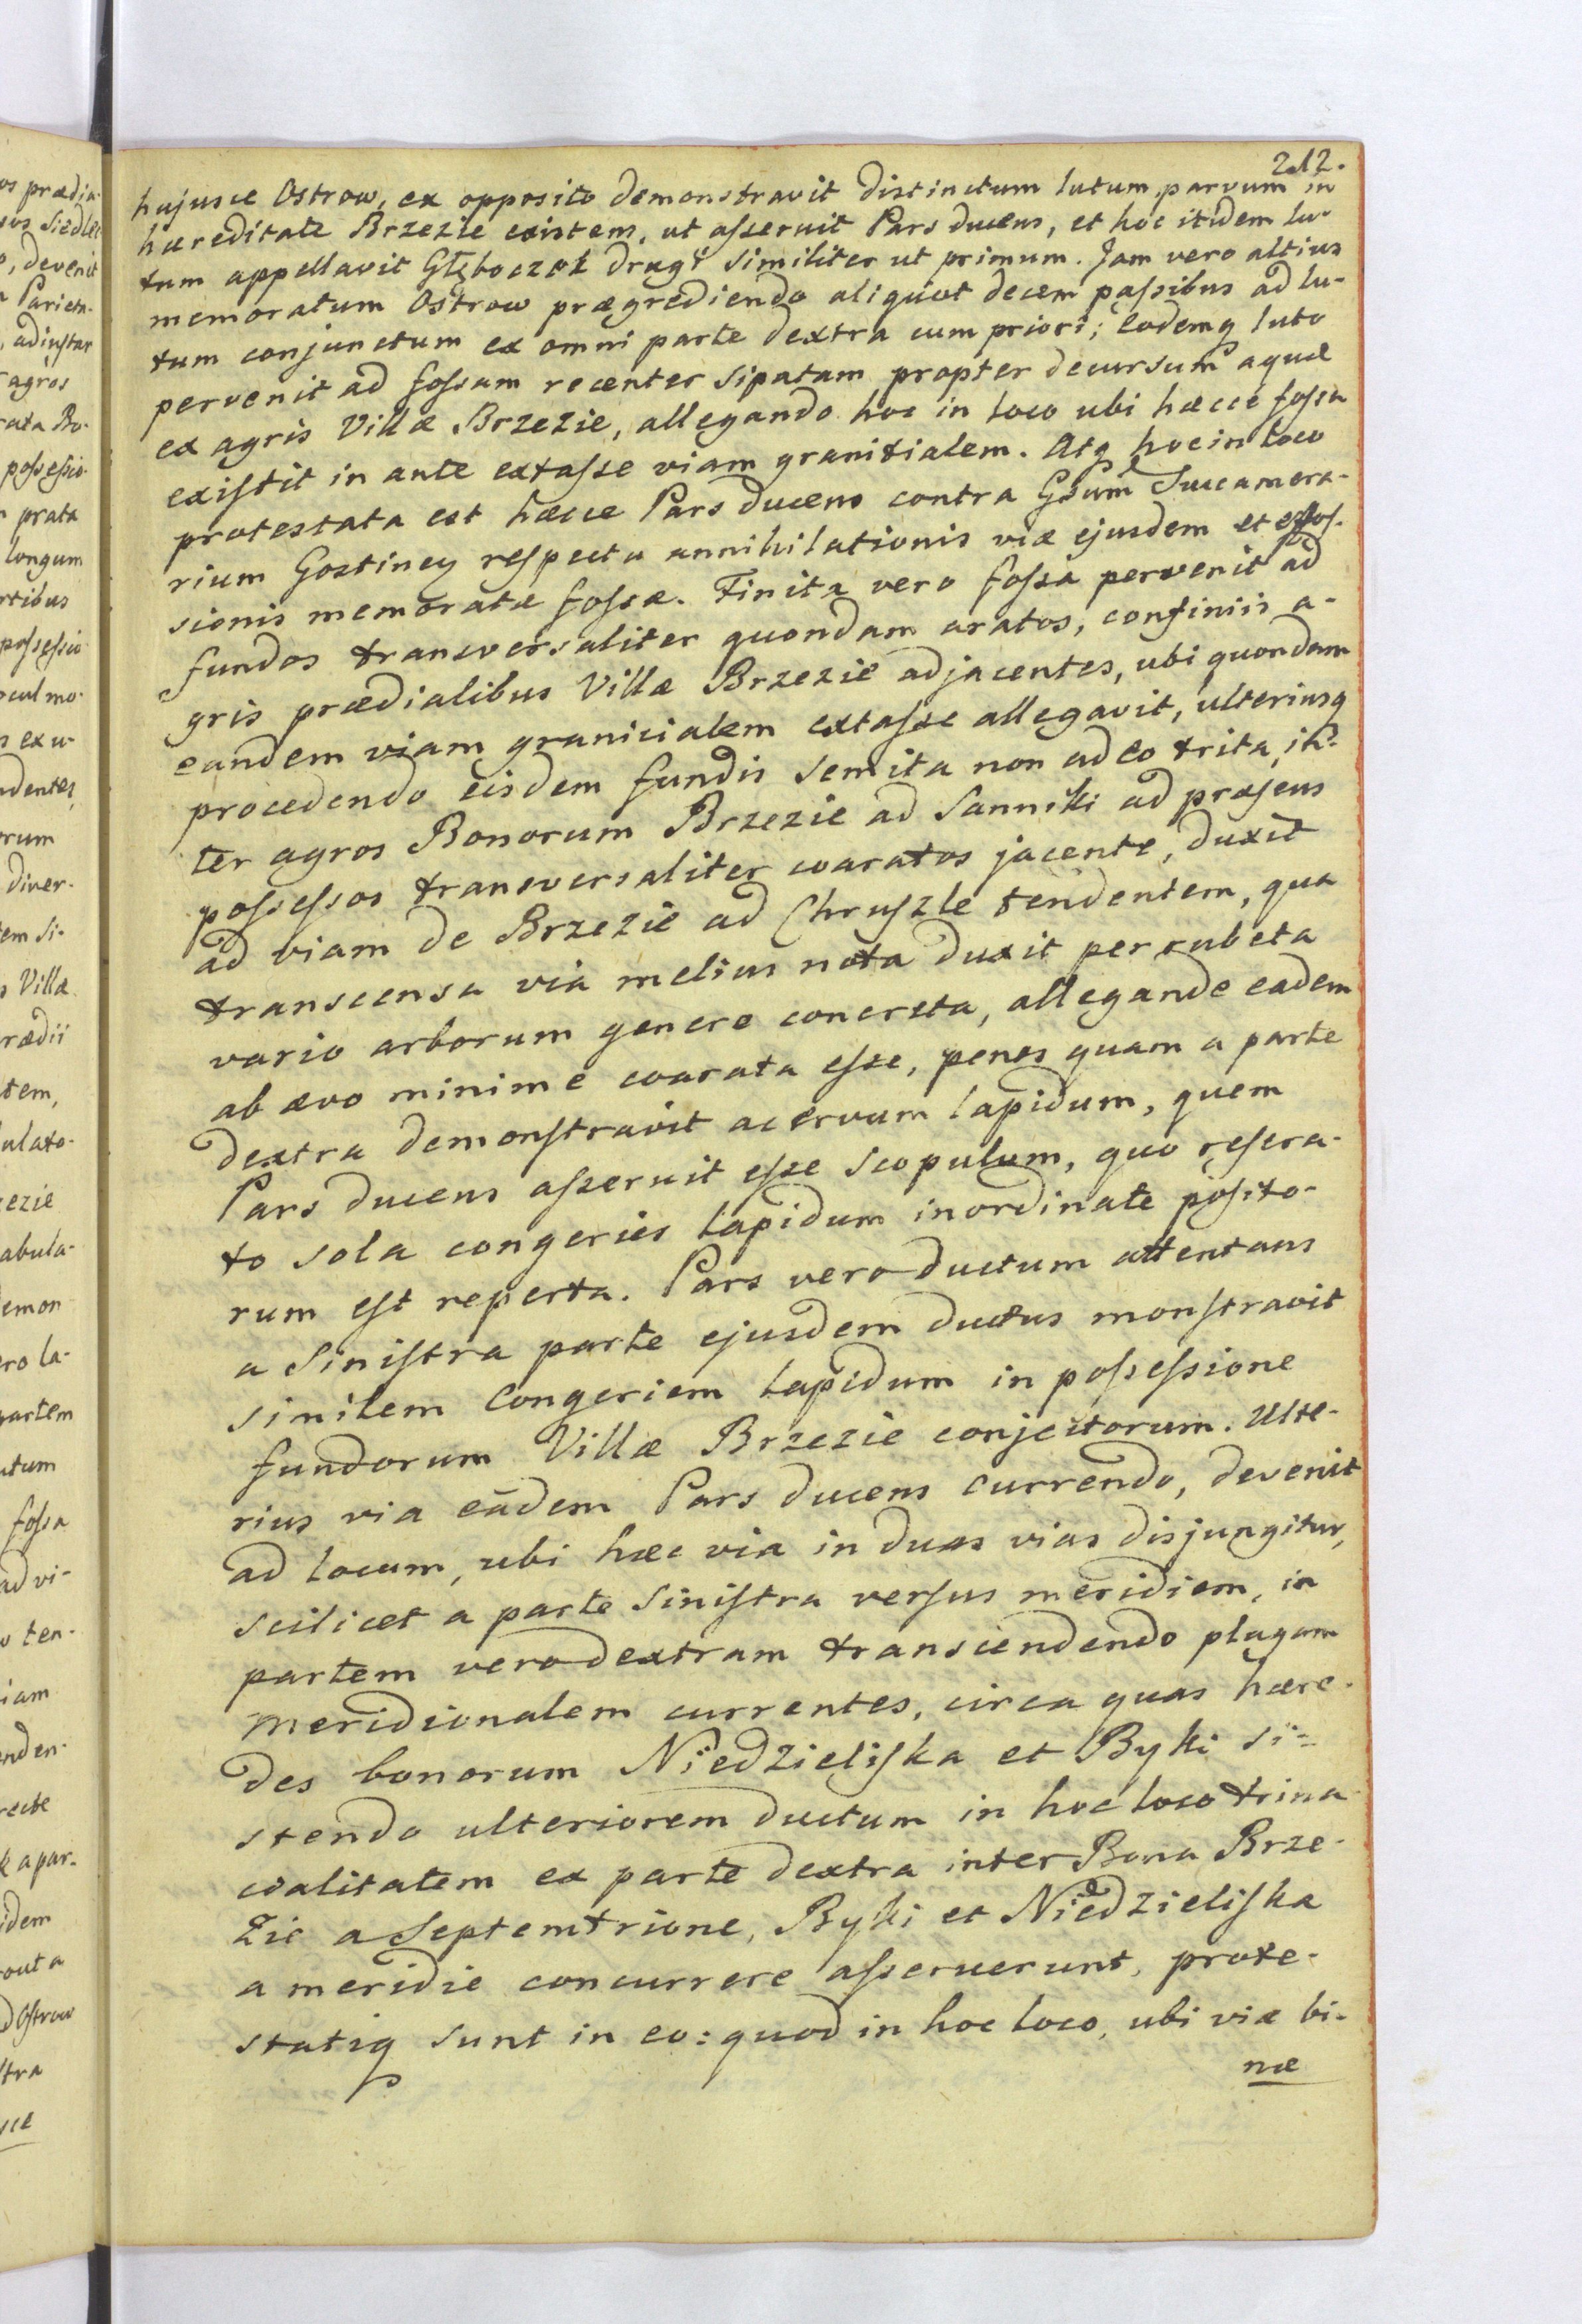 212.
hujusce Ostrow, ex opposito demonstravit distinctum lutum parvum in
hæreditate Brzezie existens, ut asseruit Pars ducens, et hoc itidem lu-
tum appellavit Głęboczek drugi similiter ut primum. Jam vero altius
memoratum Ostrow prægrediendo aliquot decem passibus ad lu-
tum conjunctum ex omni parte dextra cum priori; eodemq luto
pervenit ad fossam recenter sipatam propter decursum aquæ
ex agris Villæ Brzezie, allegando hoc in loco ubi hæcce fossa
existit in ante extasse viam granitialem. Atq hoc in loco
protestata est hæcce Pars ducens contra Gsum Succamera-
rium Gostinen respectu annihilationis viæ ejusdem et effos-
sionis memoratæ fossæ. Finita vero fossa pervenit ad
fundos transversaliter quondam aratos, confiniis a-
gris prædialibus Villæ Brzezie adjacentes, ubi quondam
eandem viam granicialem extasse allegavit, ulteriusq
procedendo eisdem fundis semita non adeo trita, in-
ter agros Bonorum Brzezie ad Sanniki ad præsens
possessos transversaliter coaratos jacente, duxit
ad viam de Brzezie ad Chruszle tendentem, qua
transcensa via melius nota duxit per rubeta
vario arborum genere concreta, allegande eadem
ab ævo minime coarata esse, penes quam a parte
dextra demonstravit acervum lapidum, quem
Pars ducens asseruit esse scopulum, quo resera-
to sola congeries lapidum inordinate posito-
rum est reperta. Pars vero ductum attentans
a sinistra parte ejusdem ductus monstravit
similem congeriem lapidum in possessione
fundorum Villæ Brzezie conjectorum. Ulte-
rius via eadem Pars ducens currendo, devenit
ad locum, ubi hæc via in duas vias disjungitur,
scilicet a parte sinistra versus meridiem, in
partem vero dextram transcendendo plagam
meridionalem currentes, circa quas hære-
des bonorum Niedzieliska et Byki si-
stendo ulteriorem ductum in hoc loco trina
coalitatem ex parte dextra inter Bona Brze-
zie a Septemtrione, Byki et Niedzieliska
a meridie concurrere asseruerunt, prote-
statiq sunt in eo: quod in hoc loco, ubi viæ bi-
næ